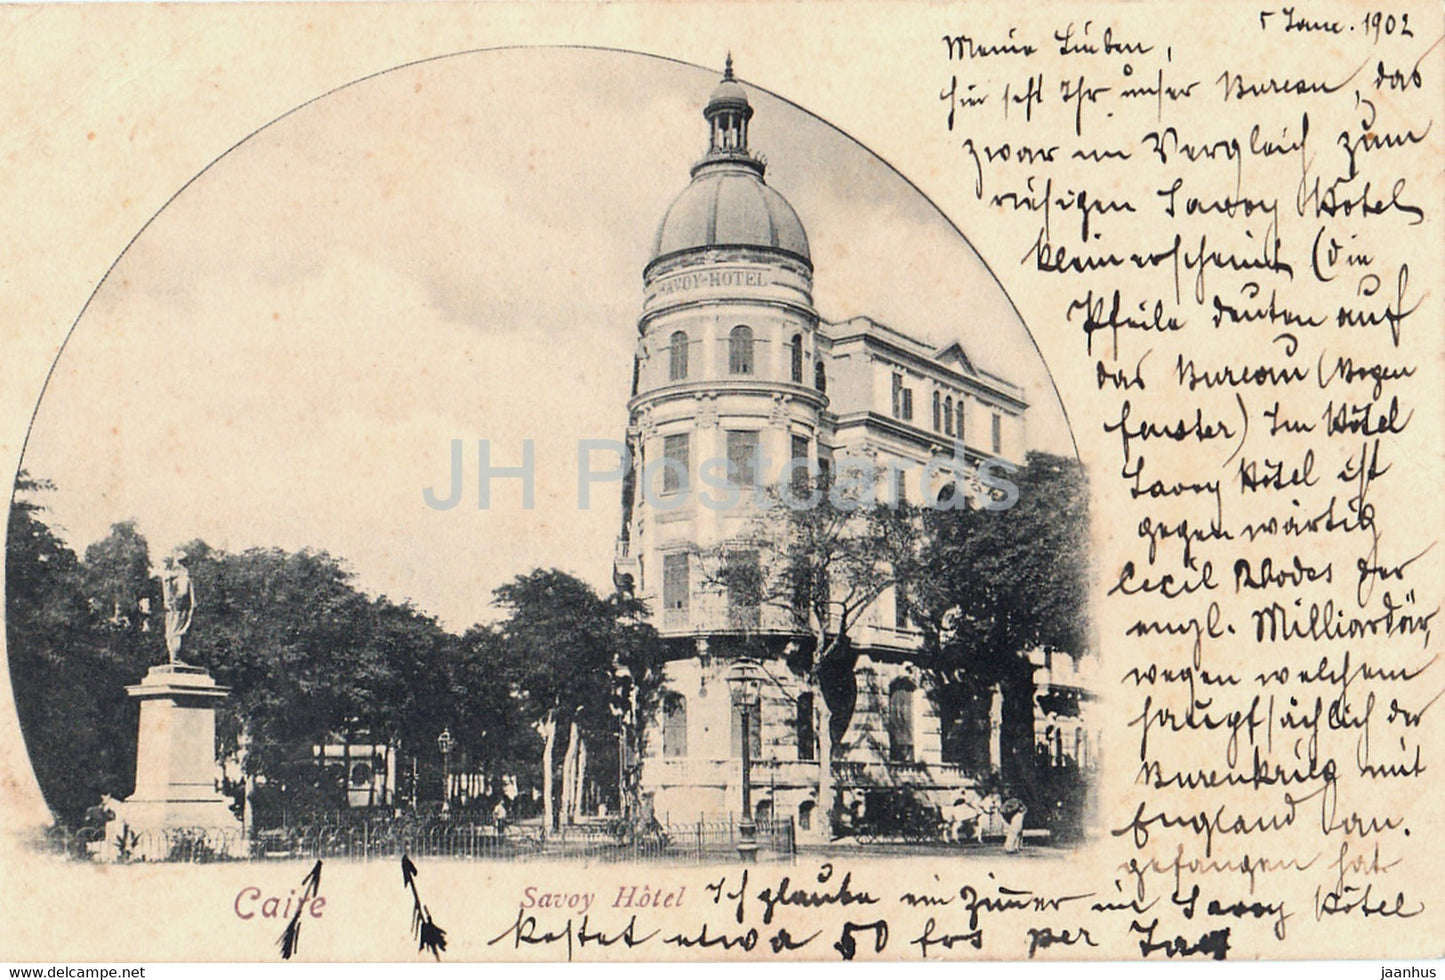 5 Jan. 1902
Meine Lieben,
hier seht Ihr unser Bureau, das
zwar im Vergleich zum
riesigen Savoy Hôtel
klein erscheint (die
Pfeile deuten auf
das Bureau (Bogen
fenster) Im Hôtel
Savoy Hôtel ist
gegenwärtig
Cecil Rhodes der
engl. Milliardär,
wegen welchem
hauptsächlich der
Burenkrieg mit
England an.
gefangen hat
SAVOY-HOTEL
JH Postcards
Caire
Savoy Hôtel
Ich glaube ein Zimmer im Savoy Hôtel
kostet etwa 50 frs per Tag
www.jaanhus.com/cp
jaanhus